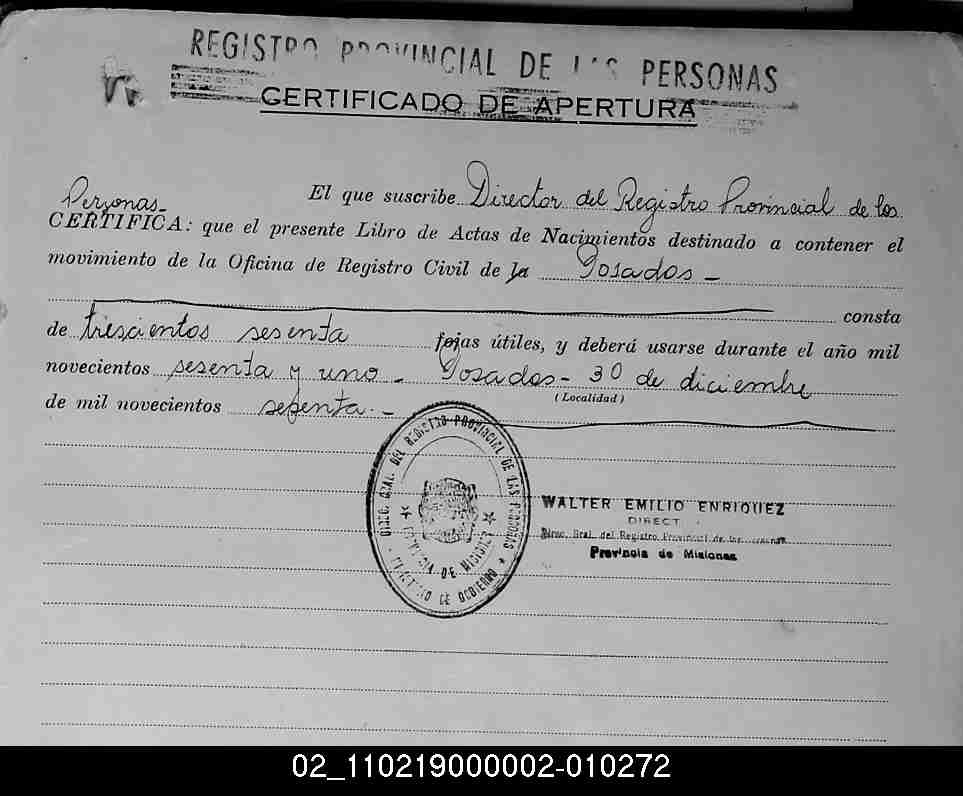 REGISTRO PROVINCIAL DE LAS PERSONAS
CERTIFICADO DE APERTURA
El que suscribe Director del Registro Provincial de los
Personas
CERTIFICA: que el presente Libro de Actas de Nacimientos destinado a contener el
movimiento de la Oficina de Registro Civil de la Posadas -
consta
de trescientos sesenta fojas útiles, y deberá usarse durante el año mil
novecientos sesenta y uno - Posadas - 30 de diciembre
(Localidad)
de mil novecientos sesenta. -
DIREC. GRAL. DEL REGISTRO PROVINCIAL DE LAS PERSONAS
PROVINCIA DE MISIONES
MINISTERIO DE GOBIERNO
WALTER EMILIO ENRIQUEZ
DIRECT
Direc. Gral. del Registro Provincial de las Personas
Provincia de Misiones
02_110219000002-010272